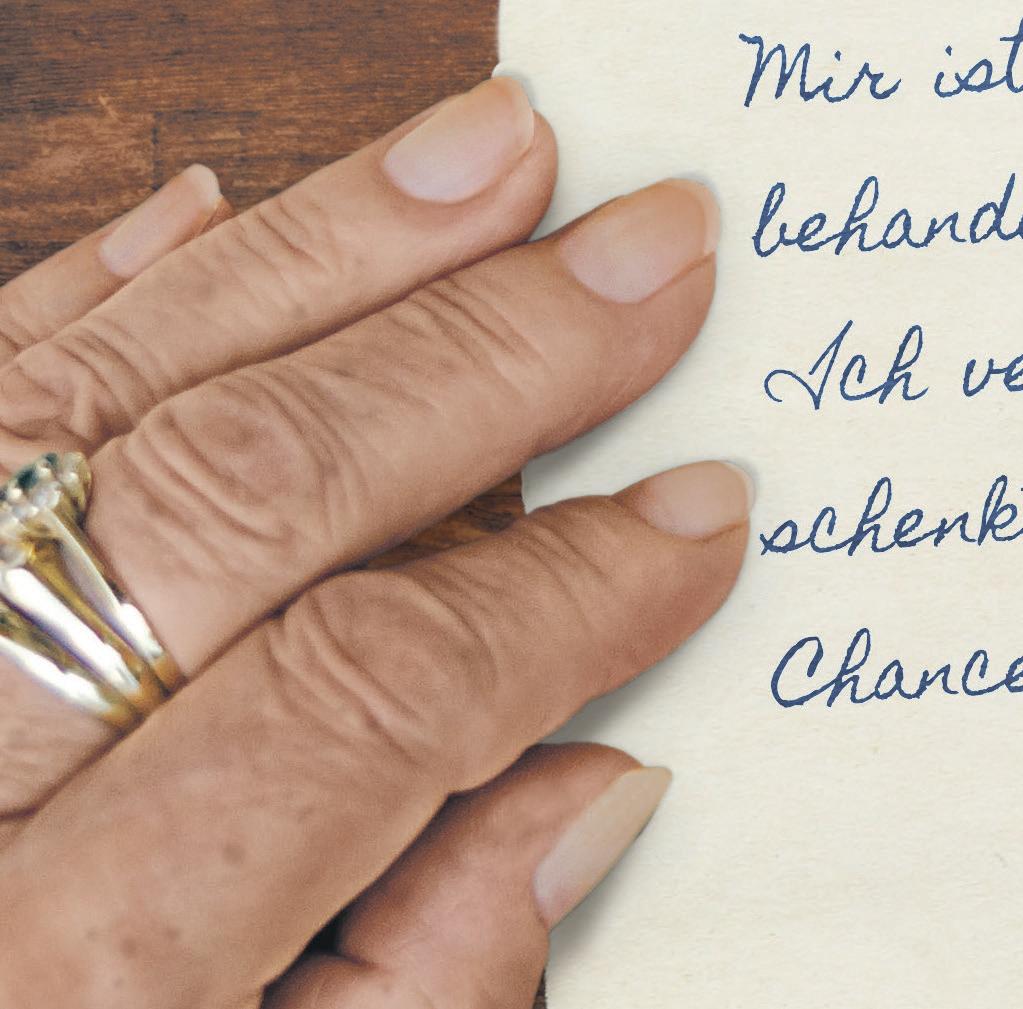 Mir ist
behand
Ich ve
schenk
Chance